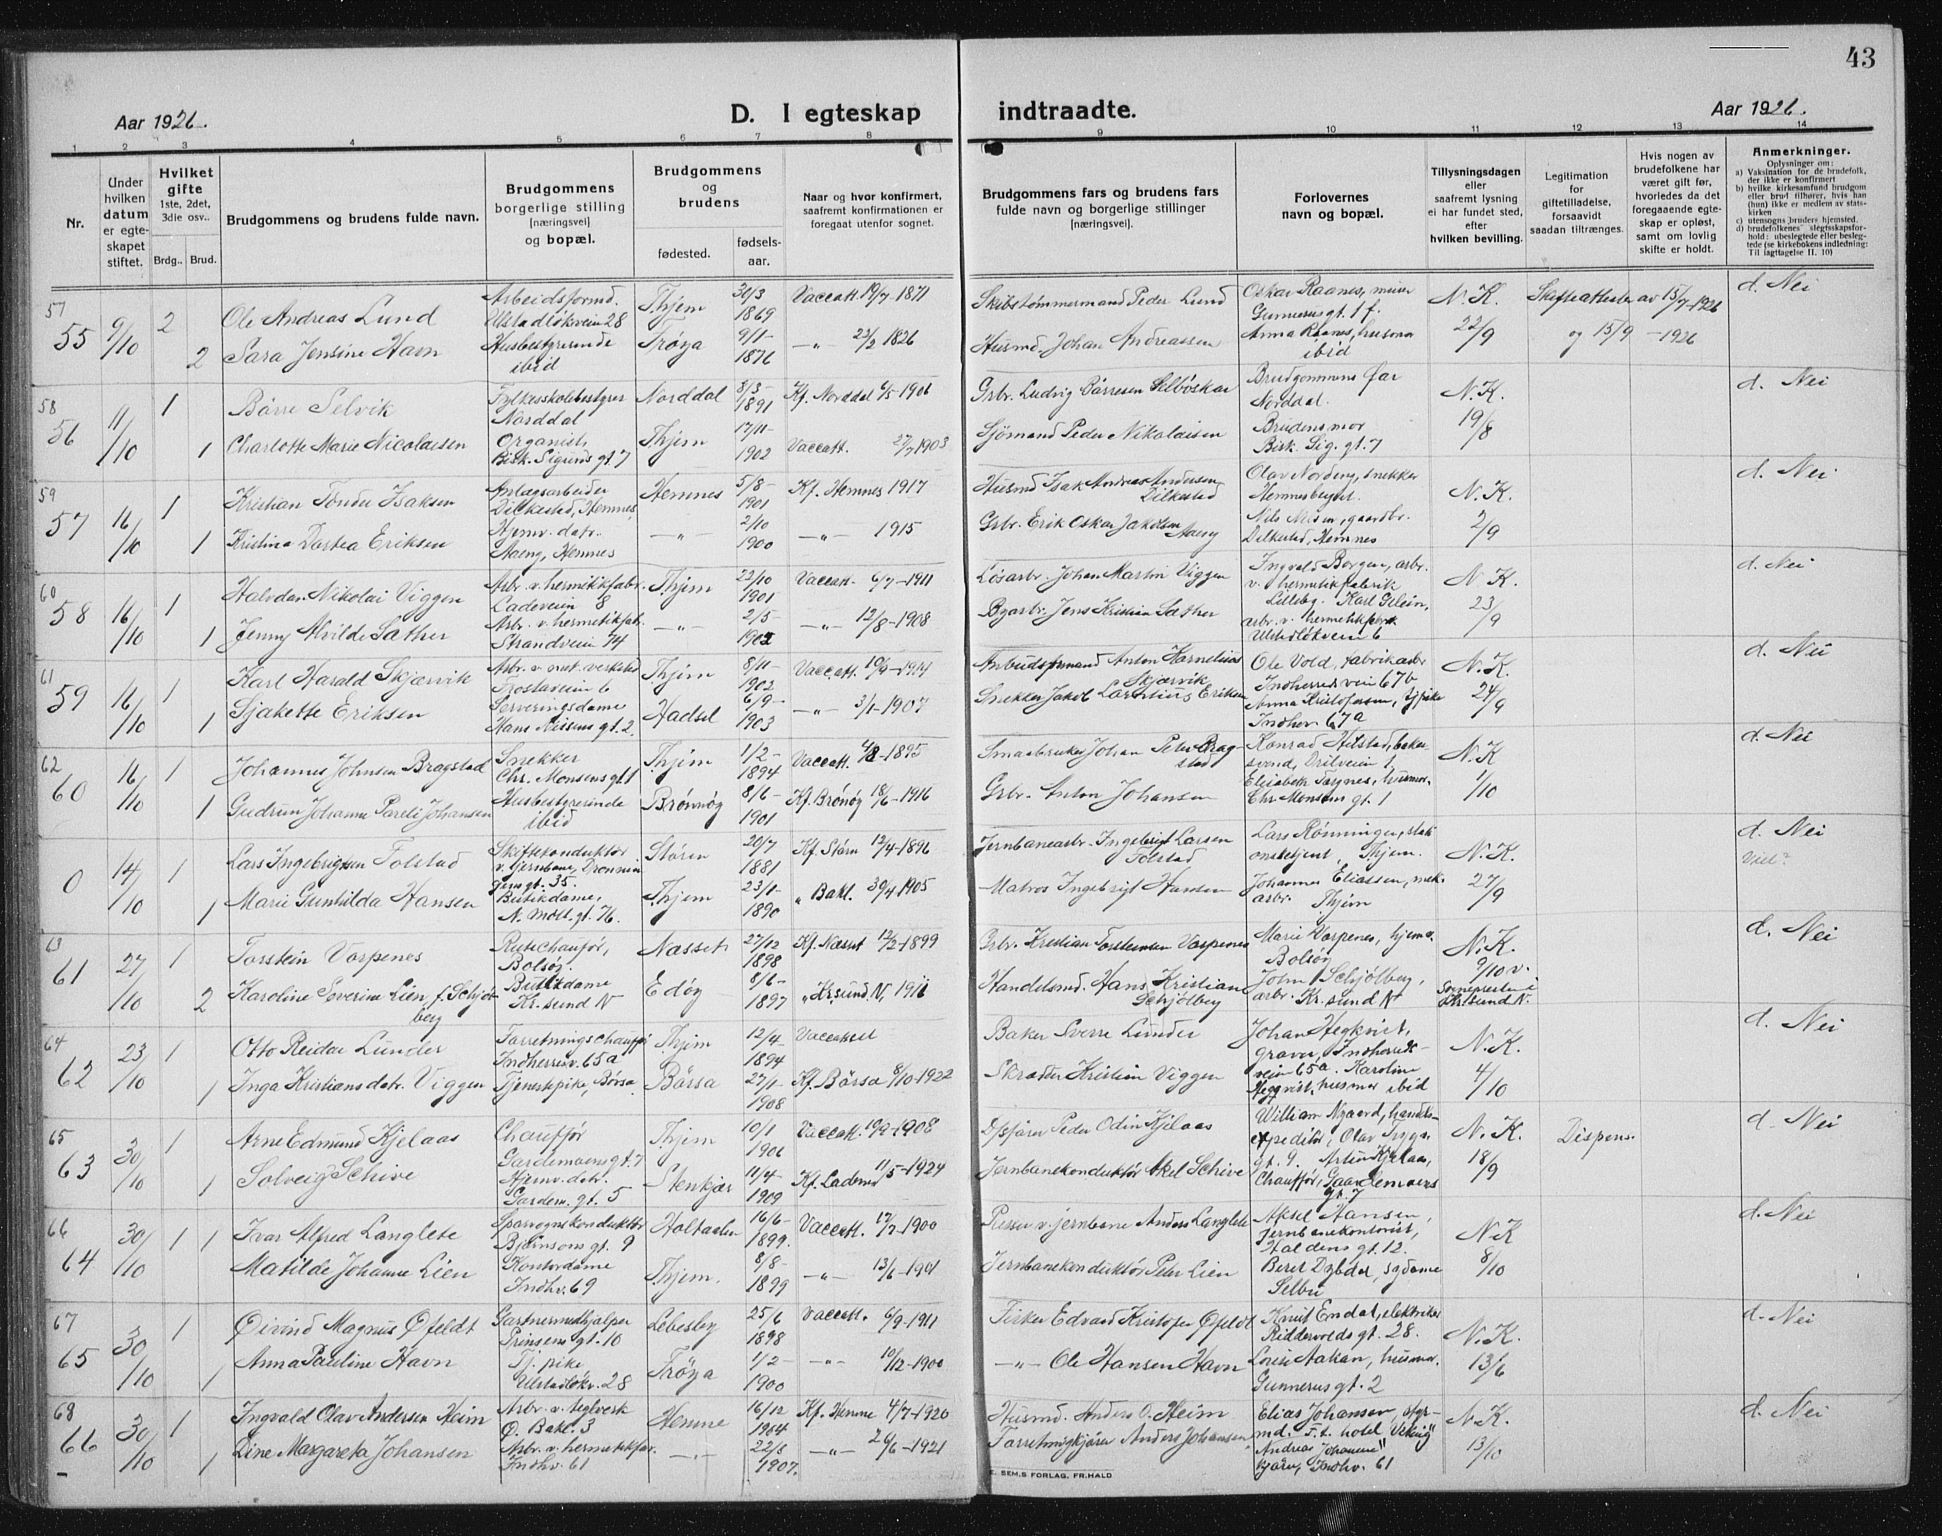 43
Aar 1926.
D. I egteskap
indtraadte.
Aar 1926.
1 2 3 4 5 6 7 8 9 10 11 12 13 14
Nr.
Under hvilken datum er egteskapet stiftet.
Hvilket gifte 1ste, 2det, 3die osv..
Brdg.. Brud.
Brudgommens og brudens fulde navn.
Brudgommens borgerlige stilling [næringsvei] og bopæl.
Brudgommens og brudens
fødested.
fødsels-aar.
Naar og hvor konfirmert, saafremt konfirmationen er foregaat utenfor sognet.
Brudgommens fars og brudens fars fulde navn og borgerlige stillinger [næringsvei].
Forlovernes navn og bopæl.
Tillysningsdagen eller saafremt lysning ei har fundet sted, efter hvilken bevilling.
Legitimation for giftetilladelse, forsaavidt saadan tiltrænges.
Hvis nogen av brudefolkene har været gift før, hvorledes da det foregaaende egteskap er opløst, samt om lovlig skifte er holdt.
Anmerkninger.
Oplysninger om:
a) Vaksination for de brudefolk, der ikke er konfirmert
b) hvilke kirkesamfund brudgom eller brud tilhører, hvis han (hun) ikke er medlem av statskirken
c) utensogns bruders hjemsted.
d) brudefolkenes slegtsskapsforhold: ubeslegtede eller beslegtede (se kirkebokens indledning: Til iagttagelse II. 10)
57
55 9/10 2 Ole Andreas Lund Arbeidsformd. Ulstadløkveien 28 Thjem 30/3 1869 Vaccatt. 19/7 1871 Skibstømmermand Peder Lund Oskar Raanes, murer Gunnerus gt. 1 f. N.K. 22/9 Skifteattester av 15/7-1926 d. Nei
2 Sara Jensine Havn Husbestyrerinde ibid Frøya 9/1- 1876 —"— 23/2 1826 Husmd. Johan Andreassen Anna Raanes, husmor ibid og 15/9 -1926
58
56 11/10 1 Børre Selvik Fylkesskolebestyrer Norddal Norddal 8/3- 1891 Kf. Norddal 6/5-1906 Grbr. Ludvig Børresen Selboskar Brudgommens far Norddal. N.K. 19/8 d. Nei
1 Charlotte Marie Nicolaisen Organist, Bisk. Sigurds gt. 7 Thjem 17/11- 1902 Vaccatt. 27/7 1903 Sjømand Peder Nikolaisen Brudens mor Bisk. Sig. gt. 7
59
57 16/10 1 Kristian Tønder Isaksen Anlægsarbeider Dilkestad, Hemnes Hemnes 5/8- 1901 Kf. Hemnes 1917 Husmd Isak Andreas Andersen Dilkestad Olav Nordeng, snekker Hemnesberget. N.K. 2/9 d. Nei
1 Kristina Dortea Eriksen Hjemv. datr. Aaeng, Hemnes —"— 2/10 1900 —"— 1915 Grbr. Erik Oskar Jakobsen Aaeng Nils Nilsen, gaardbr. Dilkestad, Hemnes
60
58 16/10 1 Halvdan Nikolai Viggen Arb. v. hermetikkfabr. Ladeveien 8 Thjem 23/10 1901 Vaccatt. 6/7-1911 Løsarbr. Johan Martin Viggen Ingvald Borgen, arbr. v. hermetikfabrik Lillebg. N.K. 23/9 d. Nei
1 Jenny Alvilde Sæther Arb. v. hermetikfabr. Strandveien 74 —"— 2/5- 1902 —"— 12/8-1908 Byarbr. Jens Kristian Sæther Karl Gilein, arbr. v. hermetikfabrik Ulstadløkveien 6
61
59 16/10 1 Karl Harald Skjærvik Arbr. v. mek. verksted Frostaveien 6 Thjem 8/11- 1902 Vaccatt. 10/9-1914 Arbeidsformand Anton Kornelius Skjærvik Ole Vold, fabrikarbr Indherredsveien 67b N.K. 24/9 d. Nei
1 Sjakette Eriksen Serveringsdame Hans Nissens gt. 2 Hadsel 6/9- 1903 —"— 3/1-1907 Snekker Jakob Laurentius Eriksen Anna Kristofersen, tj.pike Indhev. 67a
62
60 16/10 1 Johannes Johnsen Bragstad Snekker Chr. Monsens gt 1 Thjem 1/2- 1894 Vaccatt. 4/8-1895 Smaabruker Johan Peter Bragstad Konrad Hilstad, bakersvend, Orilveien 1 N.K 1/10 d. Nei
1 Gudrun Johanne Pareli Johansen Husbestyrerinde ibid Brønnøy 8/6- 1901 Kf. Brønøy 18/6-1916 Grbr. Anton Johansen Elisabeth Torgnes, husmor. Chr. Monsens gt. 1
0 14/10 1 Lars Ingebrigtsen Folstad Skiftekonduktør v. Jernbane, Dronningens gt. 35. Støren 20/7 1881 Kf. Støren 12/4-1896 Jernbanearbr. Ingebrigt Larsen Folstad Lars Rønningen, stationsbetjent, Thjem. N.K. 27/9 d. Nei Viet?
1 Marie Gunhilda Hansen Butikdame, N. Møll. gt. 76. Thjem 23/1- 1890 " Bakl. 30/4 1905 Matros Ingebrigt Hansen Johannes Eliassen, mek. arbr. Thjem
63
61 27/10 1 Torstein Vorpenes Rutechaufør, Bolsøy. Nesset 27/12 1898 Kf. Næsset 12/2-1899 Grbr. Kristian Torstensen Vorpenes Marie Vorpenes, hjemv. Bolsøy N.K. 9/10 v. Sognepresten i Kr.sund N. d. Nei
2 Karoline Severine Lien, f. Schjølberg Butikdame Kr. sund N Edøy 8/6- 1897 " Kr.sund N, 1911 Handelsmd. Hans Kristian Schjølberg John Schjølberg, arbr. Kr. sund N
64
62 23/10 1 Otto Reidar Lunder Forretningschauffør Indherredsv. 65a Thjem 12/4 1894 Vaccattest Baker Sverre Lunder Johan Hegkvist, gravør, Indherredsveien 65a. N.K. 4/10 d. Nei
1 Inga Kristiansdatr. Viggen Tjenestepike, Børsa Børsa 27/1 1908 Kf. Børsa 8/10-1922 Skrædder Kristian Viggen Karoline Hegqvist, husmor ibid
65
63 30/10 1 Arne Edmund Kjelaas Chauffør Gardemoens gt. 7 Thjem 10/1 1906 Vaccatt. 10/9-1908 Disponent Peder Odin Kjelaas William Nygaard, handelsexpeditør, Olav Trygs. gt. 9. N.K. 18/9 Dispens. d. Nei
1 Solveig Schive Hjemv. datr. Gardem. gt. 5 Stenkjær 11/4- 1909 Kf. Lademo 11/5-1924 Jernbanekonduktør Aksel Schive Artur Kjelaas, Chauffør, Gaardemoens gt. 7
66
64 30/10 1 1 Ivar Alfred Langlete Sporvognskonduktør Bjørnsons gt. 9 Holtaalen 16/6- 1899. Vaccatt. 17/7-1900 Presser v. jernbane Anders Langlete Aksel Hansen, Jernbanekontorist, Haldens gt. 12. N.K 8/10 d. Nei
Matilde Johanne Lien Kontordame Indhv. 69 Thjem. 8/8- 1899 —"— 13/6-1901 Jernbanekonduktør Peter Lien Beret Dybdal, sydame Selbu
67
65 30/10 1 Øivind Magnus Øfeldt Gartnermedhjælper Prinsens gt. 10 Lebesby 25/6 1898 Vaccatt. 6/9-1911 Fisker Edvard Kristofer Øfeldt Knut Emdal, elektriker Riddervolds gt. 28. N.K. 13/6 d. Nei
1 Anna Pauline Havn Tj. pike Ulstadløkv. 28 Frøya 1/2- 1900 —"— 10/12-1900 —"— Ole Hansen Havn Lovise Aakan, husmor. Gunnerus gt. 2
68
66 30/10 1 Ingvald Olav Andersen Heim Arbr. v. teglverk Ø. Bakl. 3 Hemne 16/12 1904 Kf. Hemne 4/7-1920 Husmd. Anders O. Heim Elias Johansen, styrmd. F.t. hotel "Viking" N.K. 13/10 d. Nei
1 Line Margareta Johansen Arbr. v. hermetikfabr. Indhv. 61 —"— 22/6 1907. —"— 26/6-1921 Forretningskjører Anders Johansen Andreas Johansen kjører, Indhv. 61
E. SEM.S FORLAG. FR.HALD